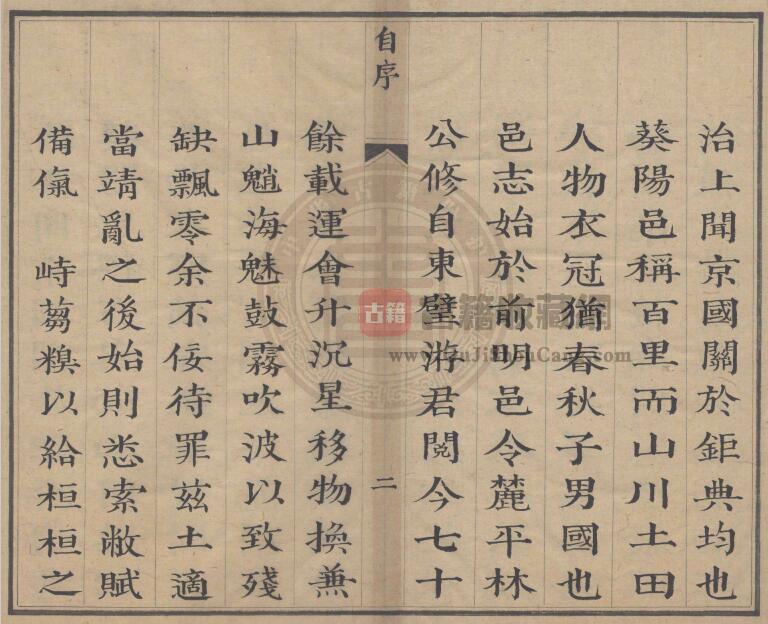 治上聞京國關於鉅典均也
葵陽邑稱百里而山川土田
人物衣冠猶春秋子男國也
邑志始於前明邑令麓平林
公修自東壁游君閱今七十
自序
二
餘載運會升沉星移物換兼
山魈海魅鼓霧吹波以致殘
缺飄零余不佞待罪茲土適
當靖亂之後始則悉索敝賦
備偫 峙蒭糗以給桓桓之
古籍